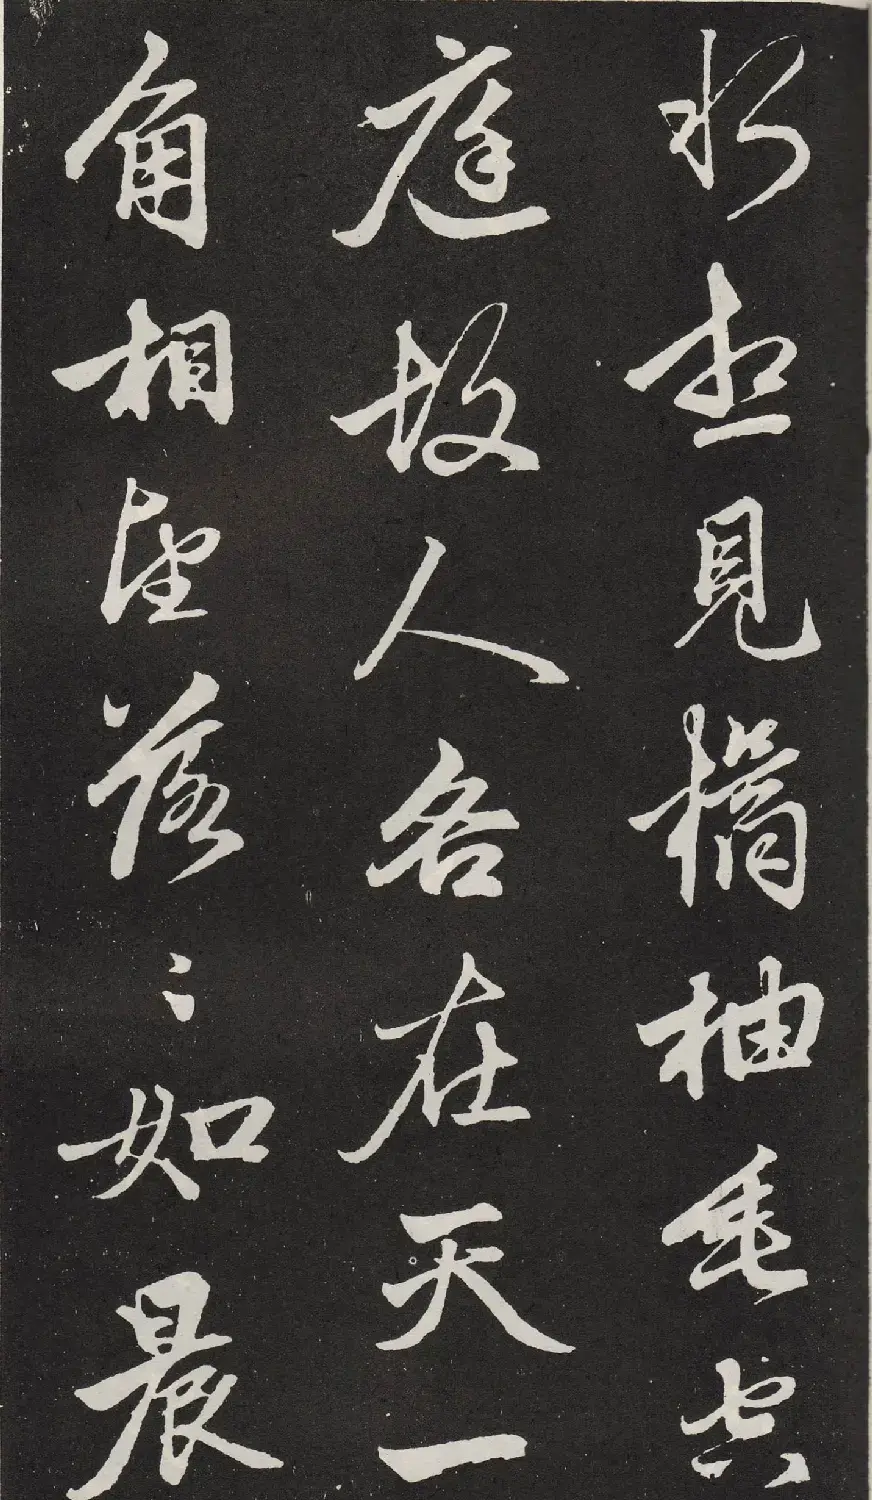 想見橘柚垂空
庭故人各在天一
角相望落〻如晨